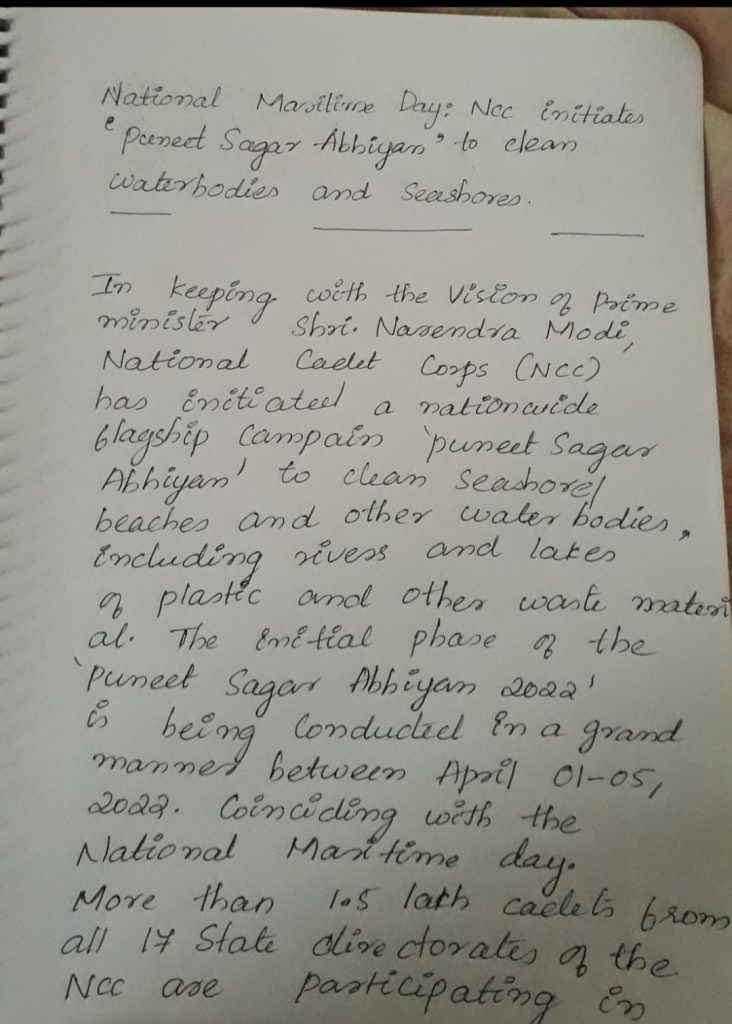 National Maritime Day: NCC initiates
'Puneet Sagar Abhiyan' to clean
waterbodies and Seashores.
In keeping with the Vision of Prime
minister Shri. Narendra Modi,
National Cadet Corps (NCC)
has initiated a nationwide
flagship Campain 'puneet Sagar
Abhiyan' to clean Seashore/
beaches and other water bodies,
including rivers and lakes
of plastic and other waste materi
al. The initial phase of the
'Puneet Sagar Abhiyan 2022'
is being Conducted in a grand
manner between April 01-05,
2022. Coinciding with the
National Maritime day.
More than 1.5 lakh cadets from
all 17 State directorates of the
NCC are participating in